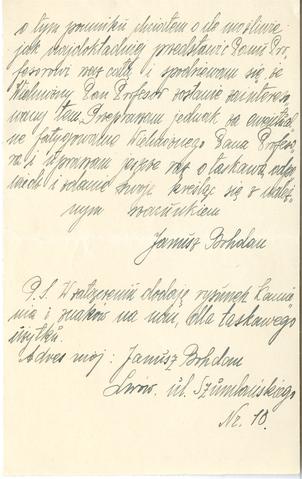 o tym pomniku chciałem o ile możliwie
jak najdokładniej przedstawić Panu Pro-
fesorowi rzecz całą i spodziewam się, że
Wielmożny Pan Profesor zostanie zaintereso-
wany tem. Przepraszam jednak za ewentual-
ne fatygowanie Wielmożnego Pana Profeso-
ra i upraszam jeszcze raz o łaskawą odpo-
wiedź i zdanie swoje kreśląc się z należ-
nym szacunkiem
Janusz Bohdan
P.S. W załączeniu dodaję rysunek kamie-
nia i znaków na nim, dla łaskawego
użytku.
Adres mój: Janusz Bohdan
Lwów. ul. Szumlańskiego
Nr. 10.